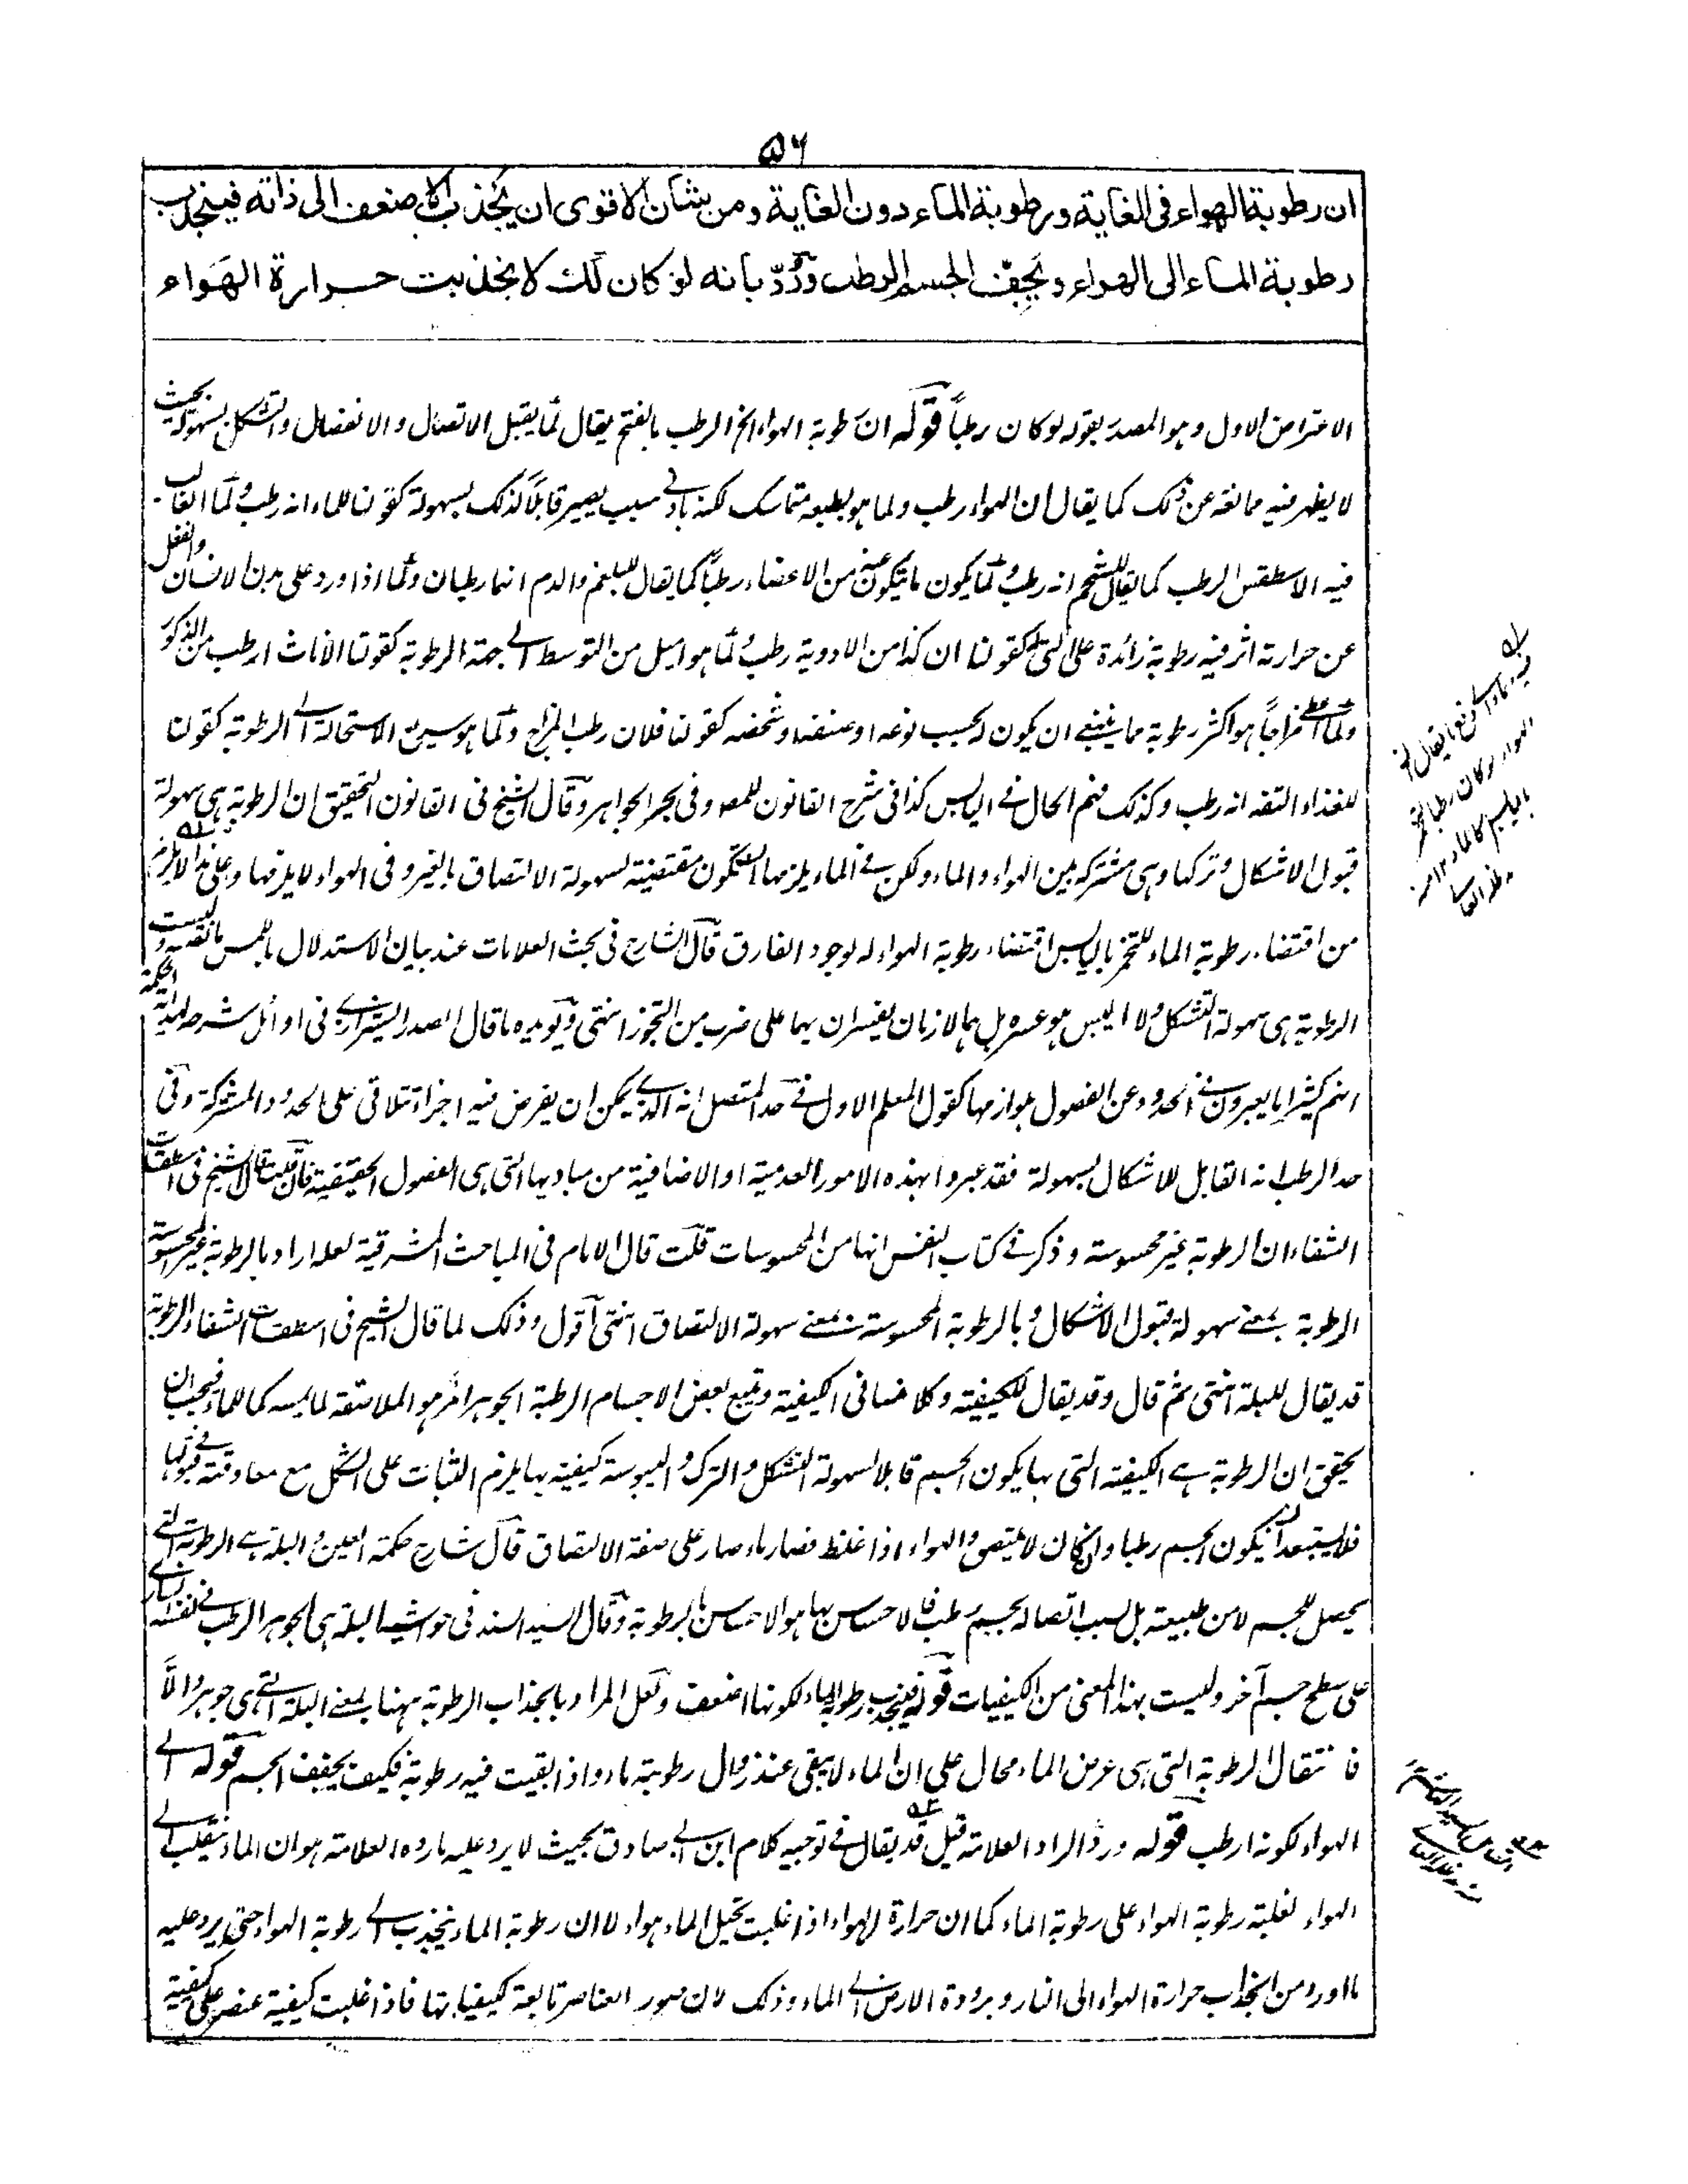 ٥٦
ان رطوبة الهواء فى الغاية ورطوبة الماء دون الغاية ومن شأن الاقوى ان يجذب الاضعف الى ذاته فينجذب
رطوبة الماء الى الهواء ويجفّف الجسم الرطب ورُدّ بانه لو كان كذلك لانجذبت حرارة الهواء
الاعتراض الاول وهو المصدر بقوله لو كان رطباً قوله ان رطوبة الهواء الخ الرطب بالفتح يقال لما يقبل الاتصال والانفصال والتشكل بسهولة بحيث
لا يظهر فيه ممانعة عن ذلك كما يقال ان الهواء رطب ولما هو بطبعه متماسك لكنه بادنى سبب يصير قابلاً لذلك بسهولة كقولنا للماء انه رطب ولما الغالب
فيه الاسطقس الرطب كما يقال للشحم انه رطب ولما يكون ما يتكون عنه من الاعضاء رطباً كما يقال للبلغم والدم انهما رطبان ولما اذا ورد على بدن الانسان وانفعل
عن حرارته اثر فيه رطوبة زائدة على التى له كقولنا ان كذا من الادوية رطب ولما هو اميل من التوسط الى جهة الرطوبة كقولنا الاناث ارطب من الذكور
ولما اعطى مزاجاً هو اكثر رطوبة مما ينبغى ان يكون له بحسب نوعه او صنفه او شخصه كقولنا فلان رطب المزاج ولما هو سريع الاستحالة الى الرطوبة كقولنا
للغذاء التفه انه رطب وكذلك فهم الحال فى اليابس كذا فى شرح القانون للمص وفى بحر الجواهر وقال الشيخ فى القانون التحقيق ان الرطوبة هى سهولة
قبول الاشكال وتركها وهى مشتركة بين الهواء والماء ولكن فى الماء يلزمها ان تكون مقتضية لسهولة الالتصاق بالغير وفى الهواء لا يلزمها وعلى هذا لا يلزم
من اقتضاء رطوبة الماء للتخمر باليابس اقتضاء رطوبة الهواء له لوجود الفارق قال الشارح فى بحث العلامات عند بيان الاستدلال بالملمس ما نصه وليست
الرطوبة هى سهولة التشكل ولا اليبس هو عسره بل هما لازمان يفسران بهما على ضرب من التجوز انتهى ويؤيده ما قال الصدر الشيرازى فى اوائل شرح هداية الحكمة
انهم كثيرا ما يعبرون فى الحدود عن الفصول بلوازمها كقول المعلم الاول فى حد المتصل انه الذى يمكن ان يفرض فيه اجزاء تتلاقى على الحدود المشتركة وفى
حد الرطب انه القابل للاشكال بسهولة فقد عبروا بهذه الامور العدمية او الاضافية من مباديها التى هى الفصول الحقيقية فان قلت قال الشيخ فى اسطقسات
الشفاء ان الرطوبة غير محسوسة وذكر فى كتاب النفس انها من المحسوسات قلت قال الامام فى المباحث المشرقية لعله اراد بالرطوبة غير المحسوسة
الرطوبة بمعنى سهولة قبول الاشكال وبالرطوبة المحسوسة بمعنى سهولة الالتصاق انتهى اقول وذلك لما قال الشيخ فى اسطقسات الشفاء الرطوبة
قد يقال للبلة انتهى ثم قال وقد يقال للكيفية وكلامنا فى الكيفية ويتبع بعض الاجسام الرطبة الجوهر امر هو الملاصقة لما يمسه كما للماء فيجب ان
يحقق ان الرطوبة هى الكيفية التى بها يكون الجسم قابلا لسهولة التشكل والترك واليبوسة كيفية بها يلزم الثبات على الشكل مع معاوقة فى قبولها
فلا يستبعد ان يكون الجسم رطبا وان كان لا يلتصق والهواء اذا غلظ فصار ماء صار على صفة الالتصاق قال شارح حكمة العين البلة هى الرطوبة التى
يحصل للجسم لا من طبيعته بل بسبب اتصاله بجسم رطب فالاحساس بها هو الاحساس بالرطوبة وقال السيد السند فى حواشيه البلة هى الجوهر الرطب فى نفسه السارى
على سطح جسم آخر وليست بهذا المعنى من الكيفيات قوله فينجذب رطوبة الماء لكونها اضعف ولعل المراد بانجذاب الرطوبة ههنا بمعنى البلة التى هى جوهر والا
فانتقال الرطوبة التى هى عرض الماء محال على ان الماء لا يبقى عند زوال رطوبته ماء واذا بقيت فيه رطوبة فكيف يجفف الجسم قوله الى
الهواء لكونه ارطب قوله ورد الراد العلامة قيل قد يقال فى توجيه كلام ابن ابى صادق بحيث لا يرد عليه ما رده العلامة هو ان الماء ينقلب الى
الهواء لغلبة رطوبة الهواء على رطوبة الماء كما ان حرارة الهواء اذا غلبت تحيل الماء هواء لا ان رطوبة الماء ينجذب الى رطوبة الهواء حتى يرد عليه
ما اورد من انجذاب حرارة الهواء الى النار وبرودة الارض الى الماء وذلك لان صور العناصر تابعة لكيفياتها فاذا غلبت كيفية عنصر على كيفية